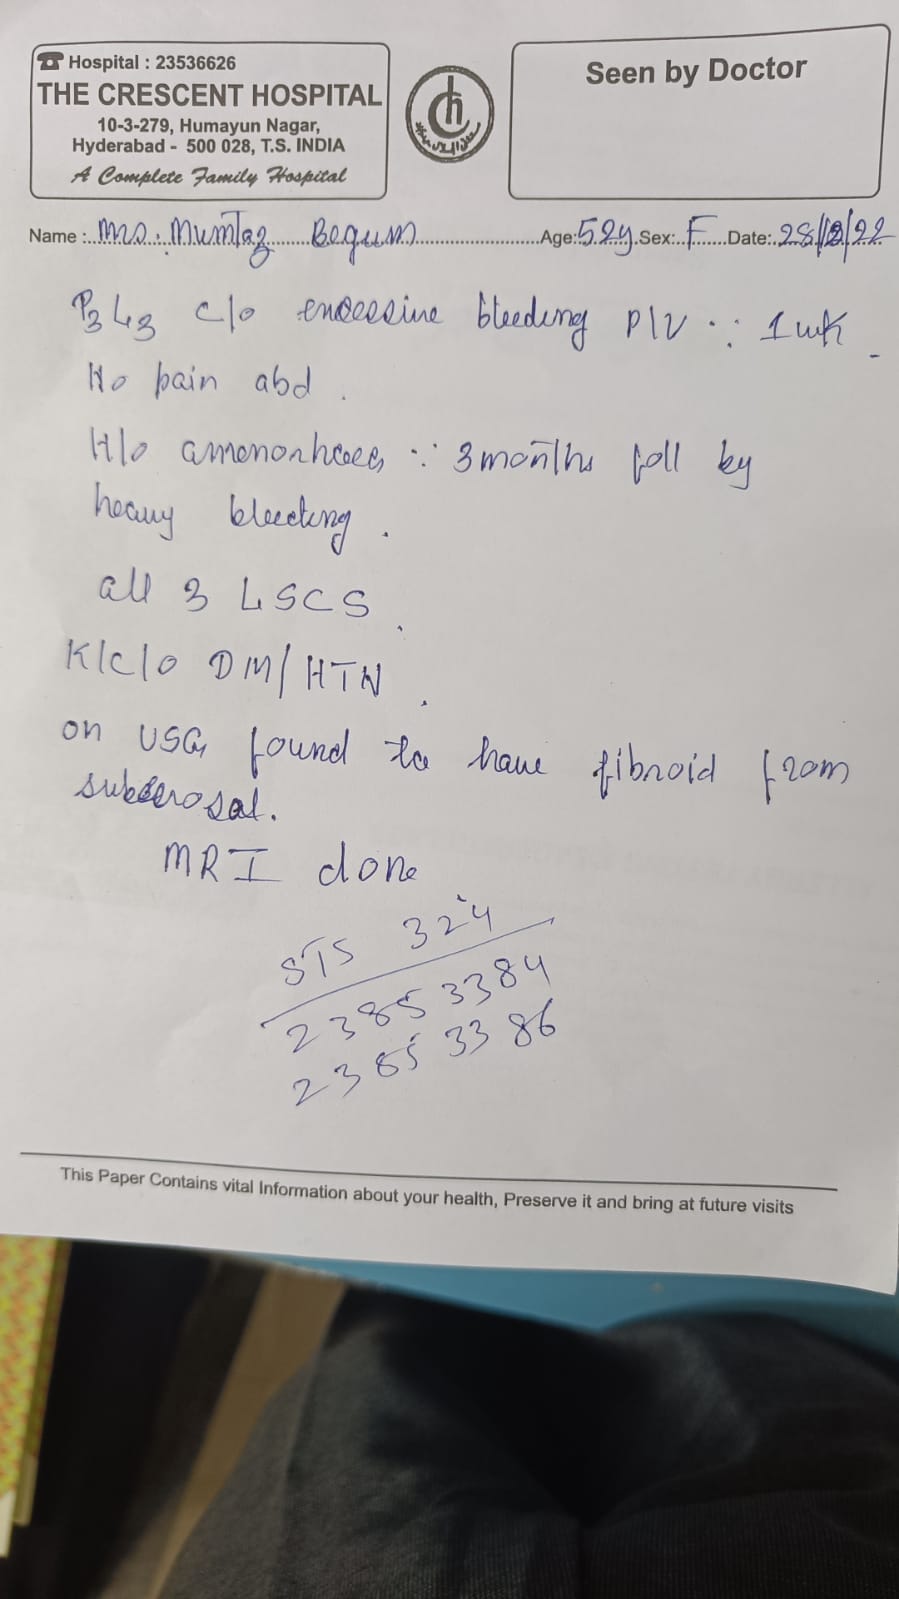 ☎ Hospital : 23536626
THE CRESCENT HOSPITAL
10-3-279, Humayun Nagar,
Hyderabad - 500 028, T.S. INDIA
A Complete Family Hospital
Seen by Doctor
Name : Mrs. Mumtaz Begum Age: 52y Sex: F Date: 28/12/22
P3L3 c/o excessive bleeding P/V ∵ 1 wk
No pain abd.
H/o amenorhoea ∵ 3 months foll by
heavy bleeding.
all 3 LSCS.
K/c/o DM/HTN.
on USG found to have fibroid from
subserosal.
MRI done
STS 324
23853384
23853386
This Paper Contains vital Information about your health, Preserve it and bring at future visits